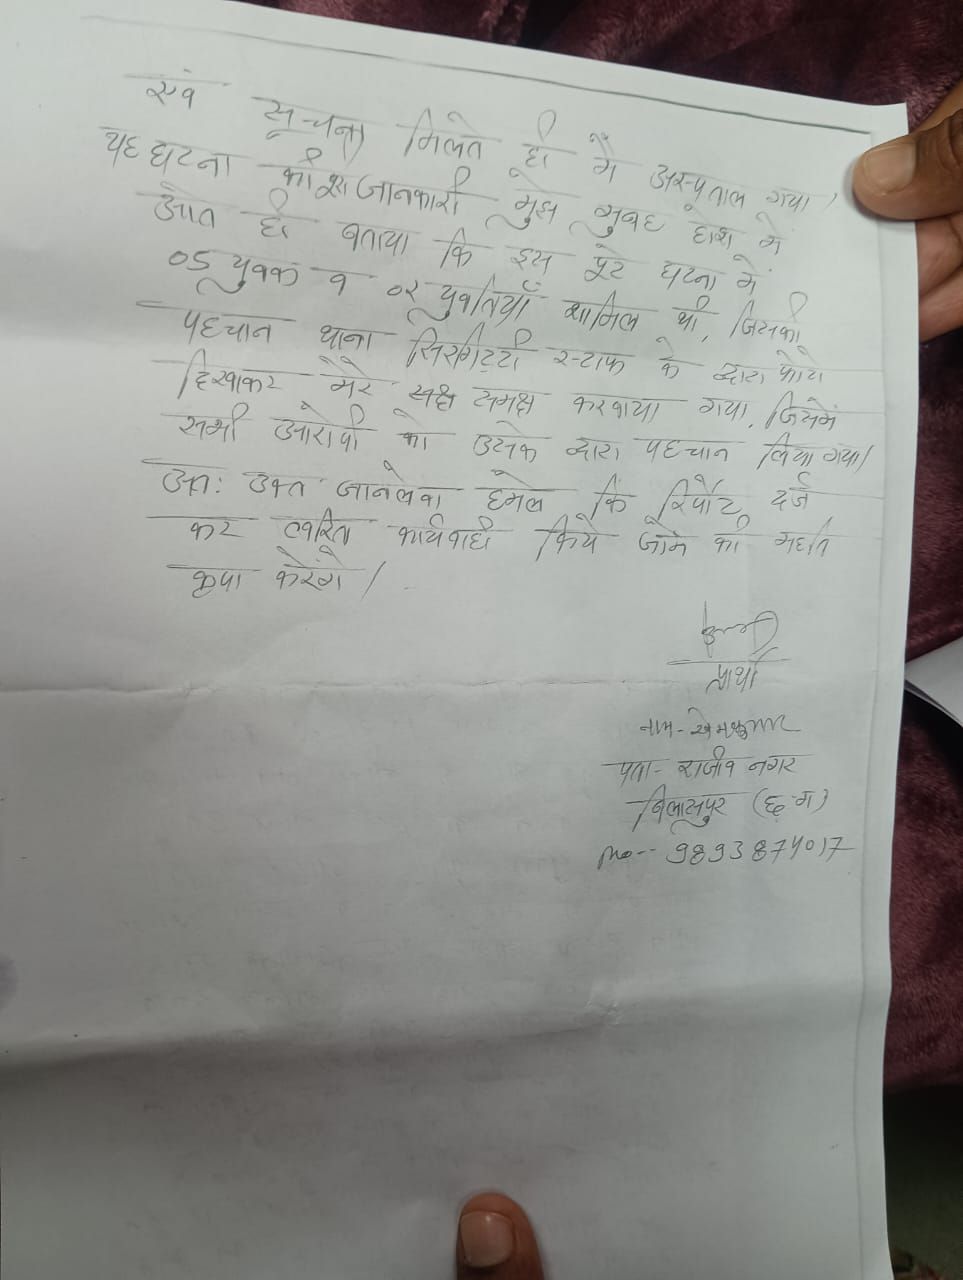 एवं सूचना मिलते ही मैं अस्पताल गया,
यह घटना की जानकारी मुझे सुबह होश में
आते ही बताया कि इस पूरे घटना में
05 युवक व 02 युवतियाँ शामिल थी, जिसकी
पहचान थाना सिरगिट्टी स्टाफ के द्वारा फोटो
दिखाकर मेरे समक्ष करवाया गया, जिसमें
सभी आरोपी को उसके द्वारा पहचान लिया गया।
अतः उक्त जानलेवा हमले कि रिपोर्ट दर्ज
कर त्वरित कार्यवाही किये जाने की महति
कृपा करेंगे।
प्रार्थी
नाम-
पता- राजीव नगर
बिलासपुर (छ.ग)
mo-- 9893874017